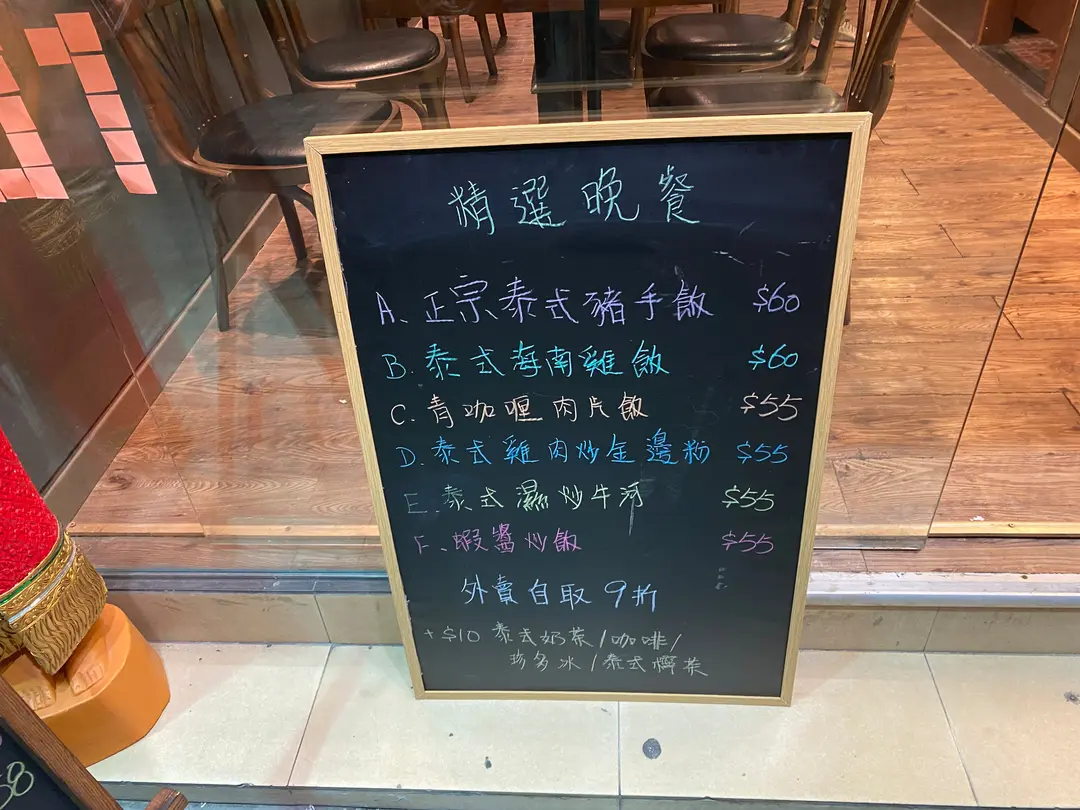 精選晚餐
A、正宗泰式豬手飯 $60
B.泰式海南雞飯 $60
C.青咖喱肉片飯 $55
D.泰式雞肉炒金邊粉 $55
E.泰式濕炒牛河 $55
F、蝦醬炒飯 $55
外賣自取 9折
+$10 泰式奶茶/咖啡/
珍多冰/泰式檸茶
58